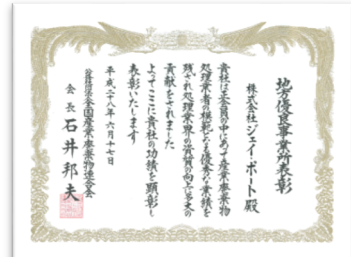 地方優良事業所表彰
株式会社ジェイ・ポート殿
貴社は正会員の中にあって産業廃棄物
処理業者の模範となる優秀な業績を
残され処理業界の資質の向上に多大の
貢献をされました
よってここに貴社の功績を顕彰し
表彰いたします
平成二十八年六月十七日
公益社団法人全国産業廃棄物連合会
会長 石井邦夫